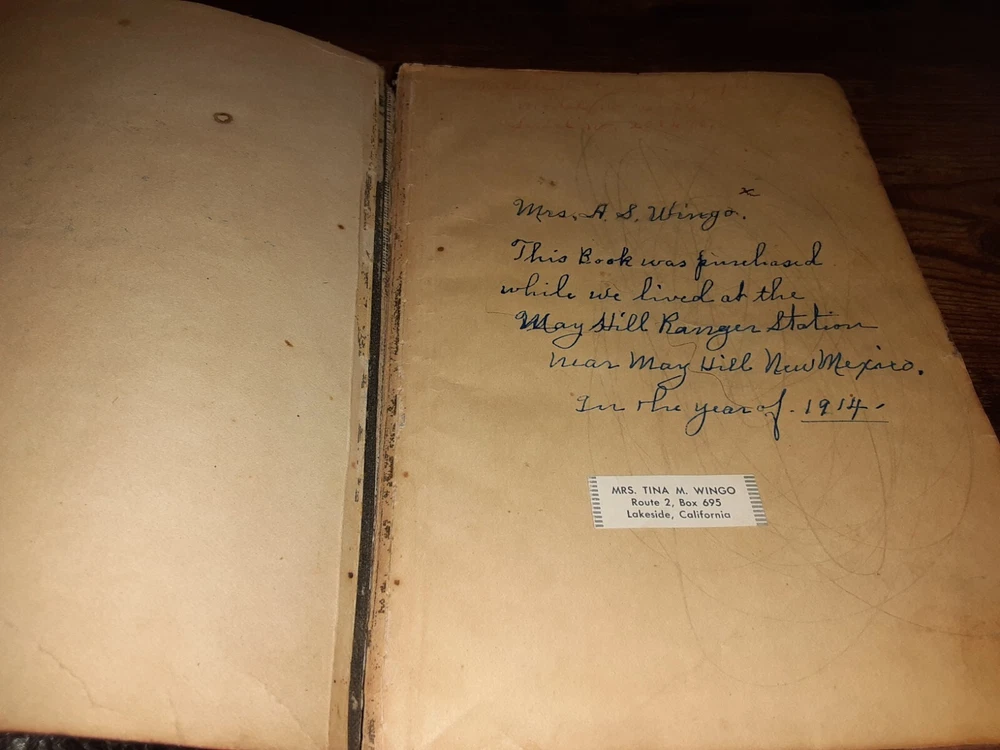 x
Mrs. A. S. Wingo.
This Book was purchased
while we lived at the
May Hill Ranger Station
near May Hill New Mexico.
In the year of. 1914-
MRS. TINA M. WINGO
Route 2, Box 695
Lakeside, California